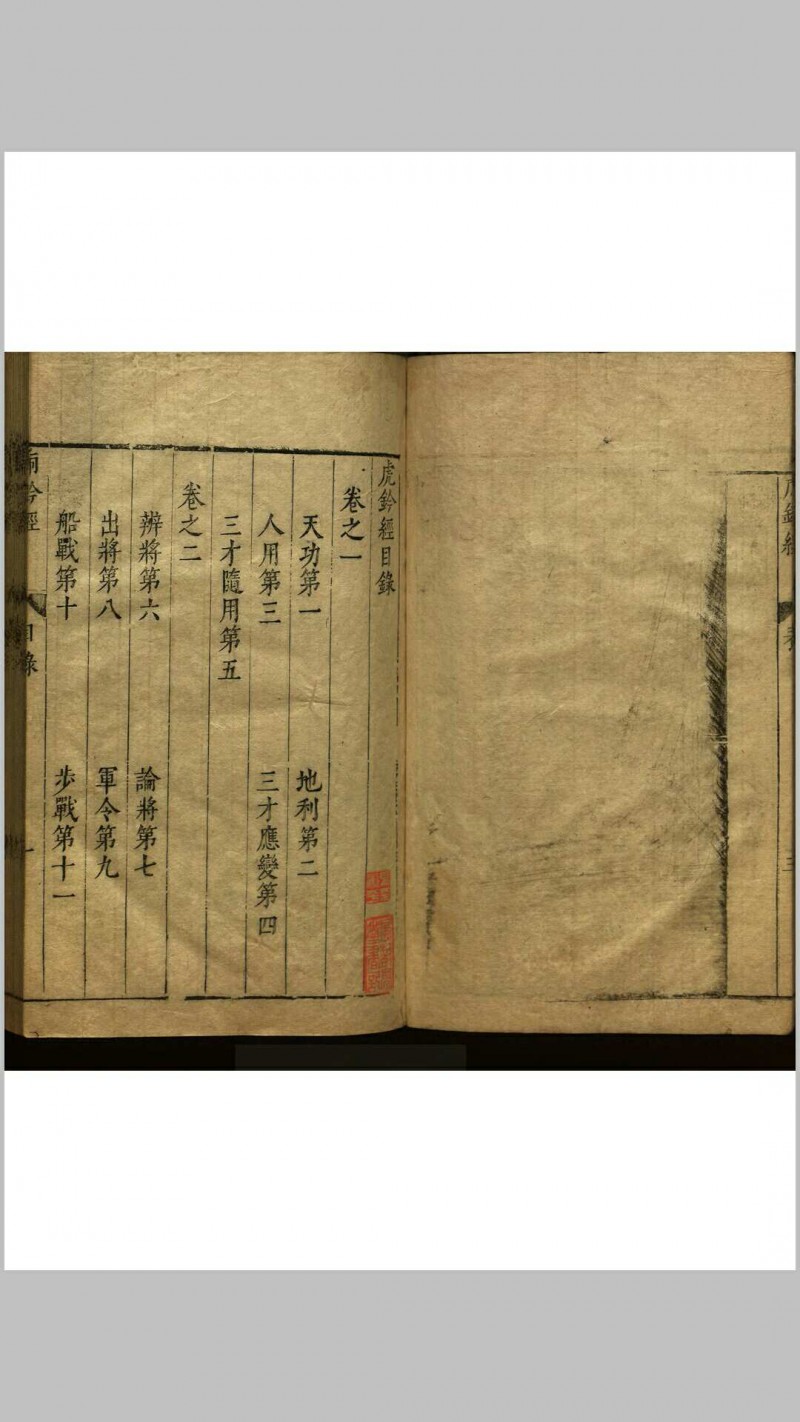 虎鈐經目錄
卷之一
天功第一　地利第二
人用第三　三才應變第四
三才隨用第五
卷之二
辨將第六　論將第七
出將第八　軍令第九
船戰第十　步戰第十一
鈐經　目錄